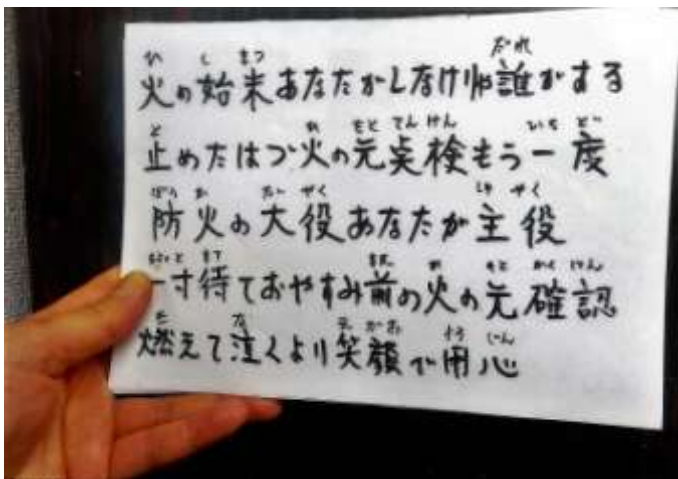 火の始末あなたがしなけりゃ誰がする
止めたはづ火の元点検もう一度
防火の大役あなたが主役
一寸待ておやすみ前の火の元確認
燃えて泣くより笑顔で用心